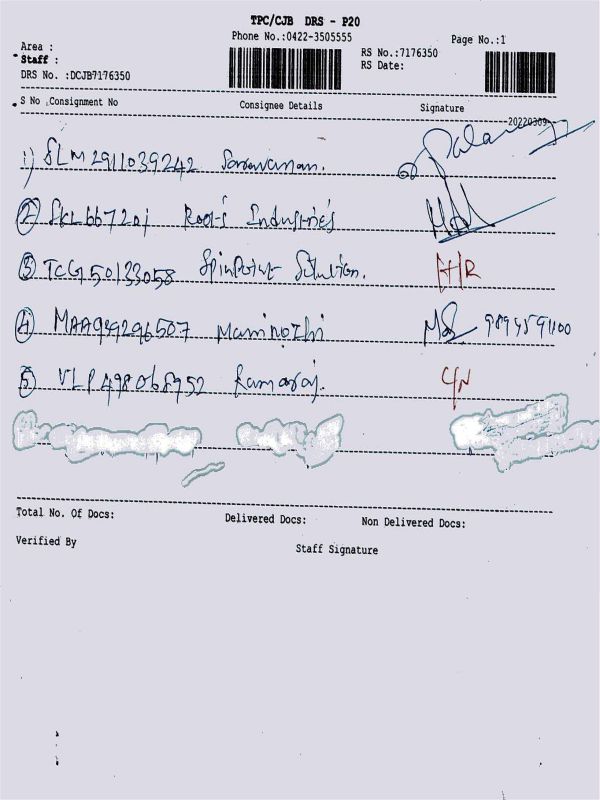 TPC/CJB DRS - P20
Phone No.:0422-3505555
Page No.:1
Area :
Staff :
RS No.:7176350
RS Date:
DRS No. :DCJB7176350
S No Consignment No Consignee Details Signature
20220309
1) SLM 2911039242 Saravanan.
2 SKL667201 Roots Industries
3 TCG50133058 SpinPoint Solution. H/R
4 MAA939296507 Manimozhi
5 VLP498068952 Ramaraj. C/N
Total No. Of Docs: Delivered Docs: Non Delivered Docs:
Verified By Staff Signature